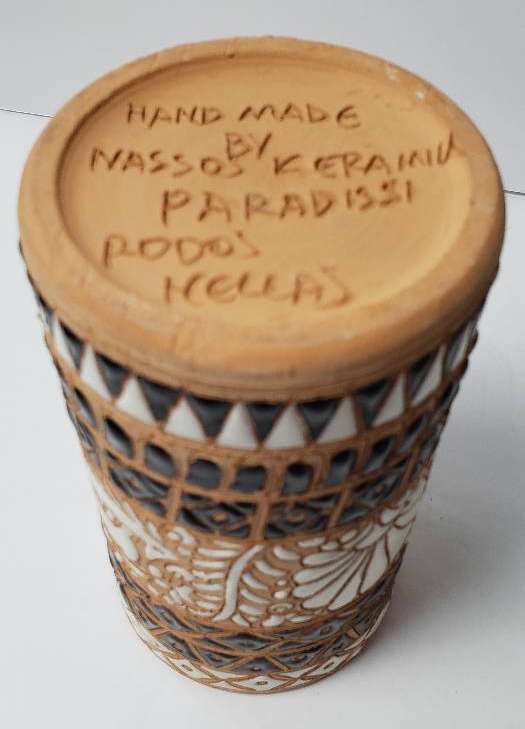 HAND MADE
BY
NASSOS KERAMIK
PARADISSI
RODOS
HELLAS